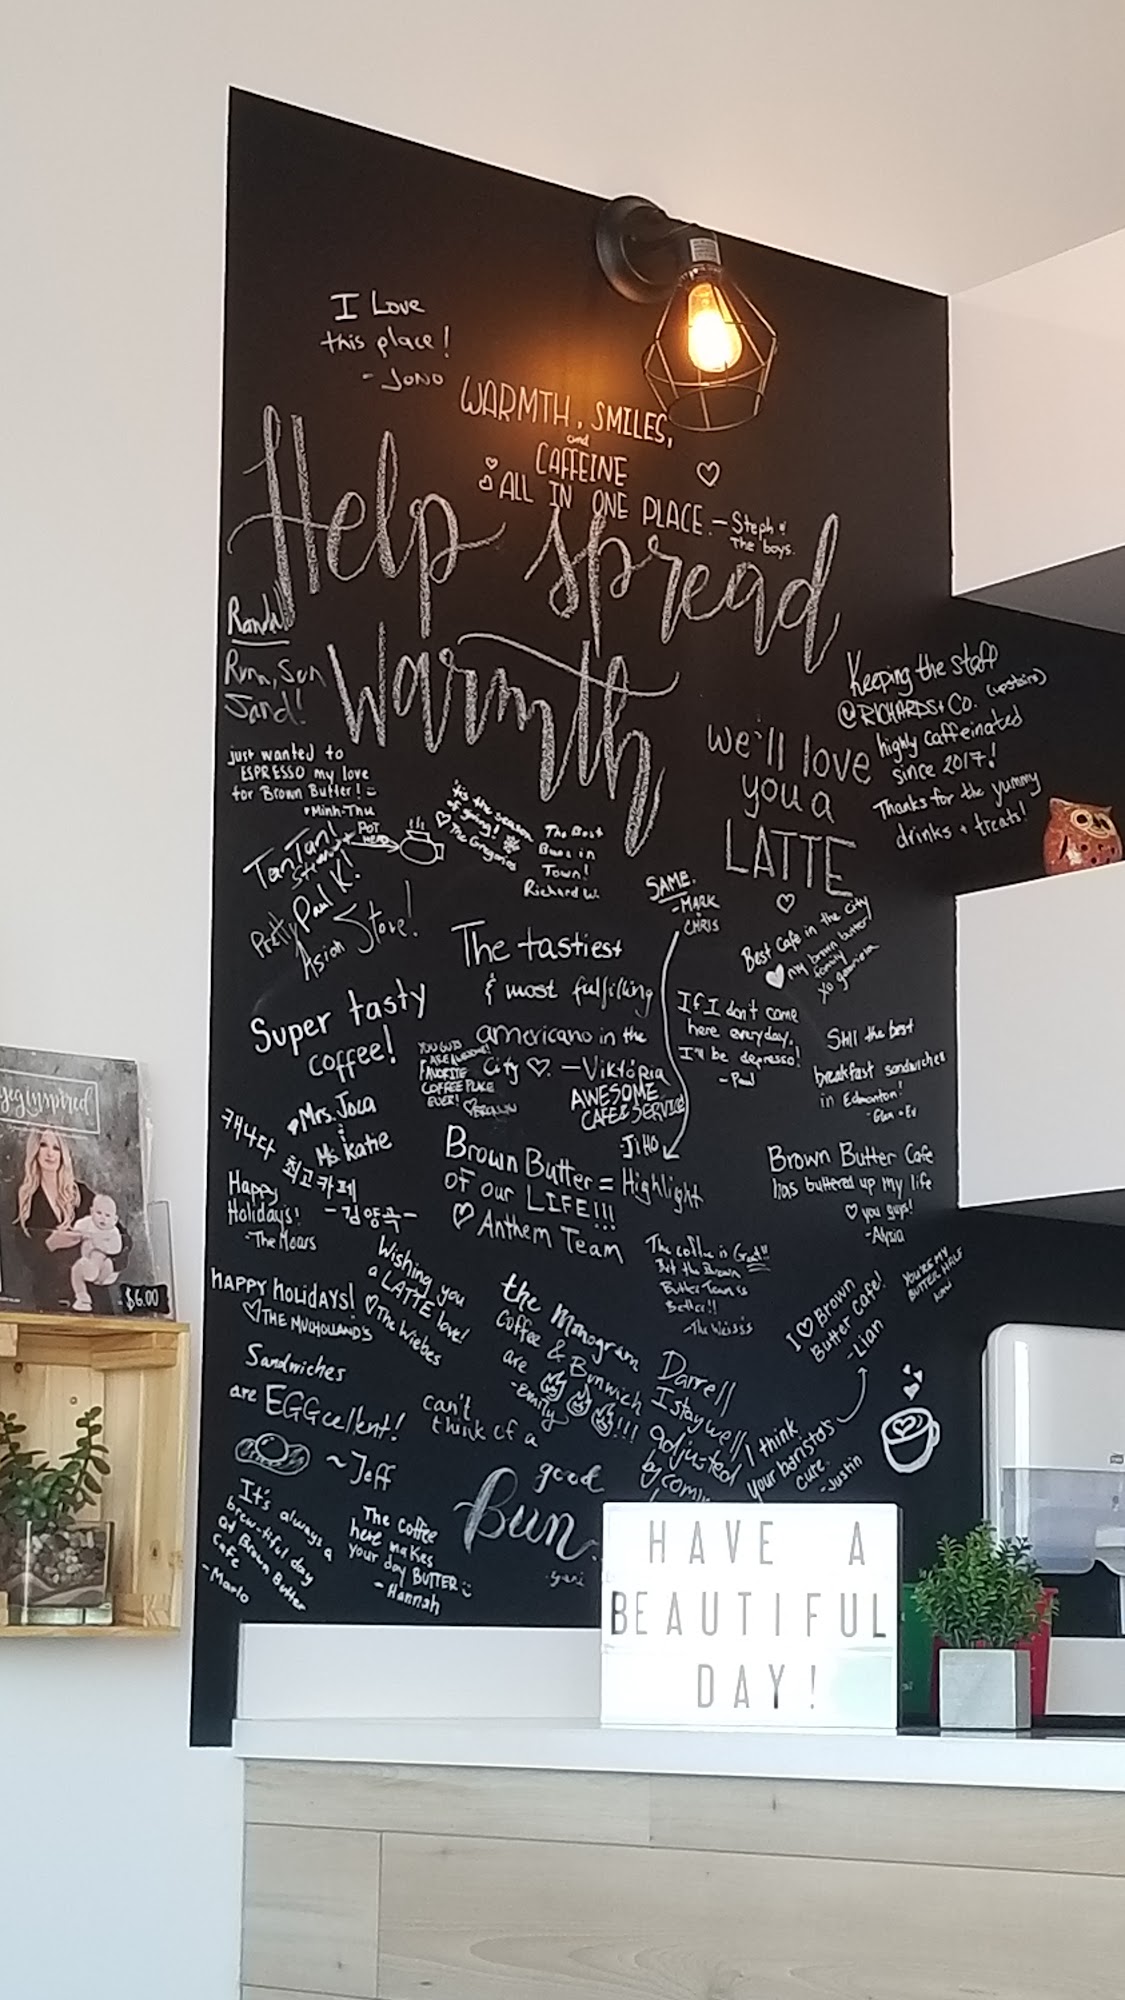 I Love
this place!
- JONO
WARMTH, SMILES,
and
CAFFEINE
ALL IN ONE PLACE. - Steph &
The boys.
Help spread
Warmth
Randal
Run, Sun
Sand!
Keeping the staff
@RICHARDS+Co. (upstairs)
highly caffeinated
since 2017!
Thanks for the yummy
drinks + treats!
we'll love
you a
LATTE
just wanted to
ESPRESSO my love
for Brown Butter!
- Minh-Thu
TanTan!
POT
HEAD
Pretty Paul K!
Asian Store!
it's the season
of giving!
The Gregories
The Best
Buns in
Town!
Richard W.
SAME.
- MARK
CHRIS
Best Cafe in the city
my brown butter
family
xo gabriela
The tastiest
& most fulfilling
americano in the
City ♡. - Viktória
If I don't come
here everyday,
I'll be depresso!
- Paul
Still the best
breakfast sandwiches
in Edmonton!
Super tasty
coffee!
Mrs. Joca
Ms Katie
YOU GUYS
ARE AWESOME!
FAVORITE
COFFEE PLACE
EVER!
AWESOME
CAFE & SERVICE
- JIHO
캐나다 최고 카페
Happy
Holidays!
- The Moars
Brown Butter = Highlight
OF our LIFE!!!
♡ Anthem Team
Brown Butter Cafe
has buttered up my life
♡ you guys!
- Alysia
The coffee is Great!!
But the Brown
Butter Team is
Better!!
HAPPY HOLIDAYS!
♡ THE MULHOLLAND'S
Wishing you
a LATTE love!
♡ The Wiebes
the Monogram
Coffee & Bunwich
are !!!
- emily
I ♡ Brown
Butter Cafe!
- Lian
YOU'RE MY
BUTTER HALF
Sandwiches
are EGGcellent!
~Jeff
can't
think of a
good
Bun.
- yuri
Darrell
I stay well
adjusted
by comin
I think
your barista's
cure.
- Justin
It's always a
brew-tiful day
at Brown Butter
Cafe
- Marlo
The coffee
here makes
your day BUTTER
- Hannah
HAVE A
BEAUTIFUL
DAY!
yeginspired
$6.00